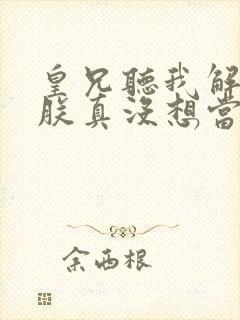 皇兄聽我解
朕真沒想當
余西根